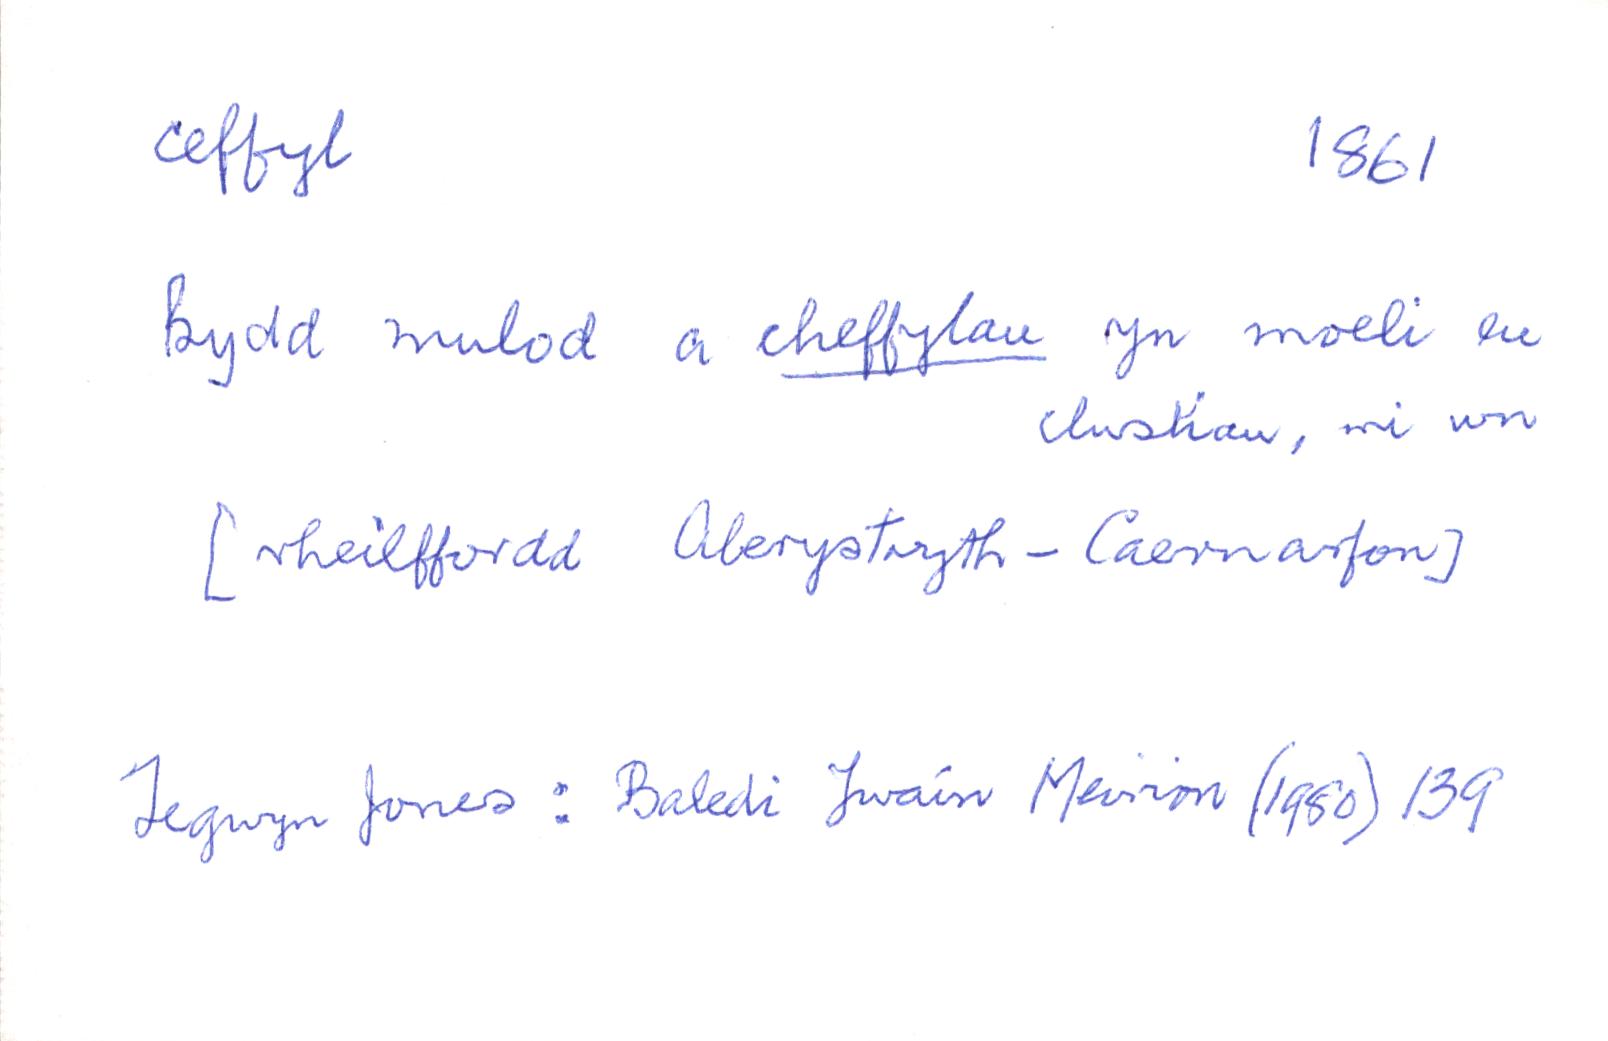 ceffyl 1861
Bydd mulod a cheffylau yn moeli eu
clustiau, mi wn
[rheilffordd Aberystwyth – Caernarfon]
Tegwyn Jones : Baledi Ywain Meirion (1980) 139